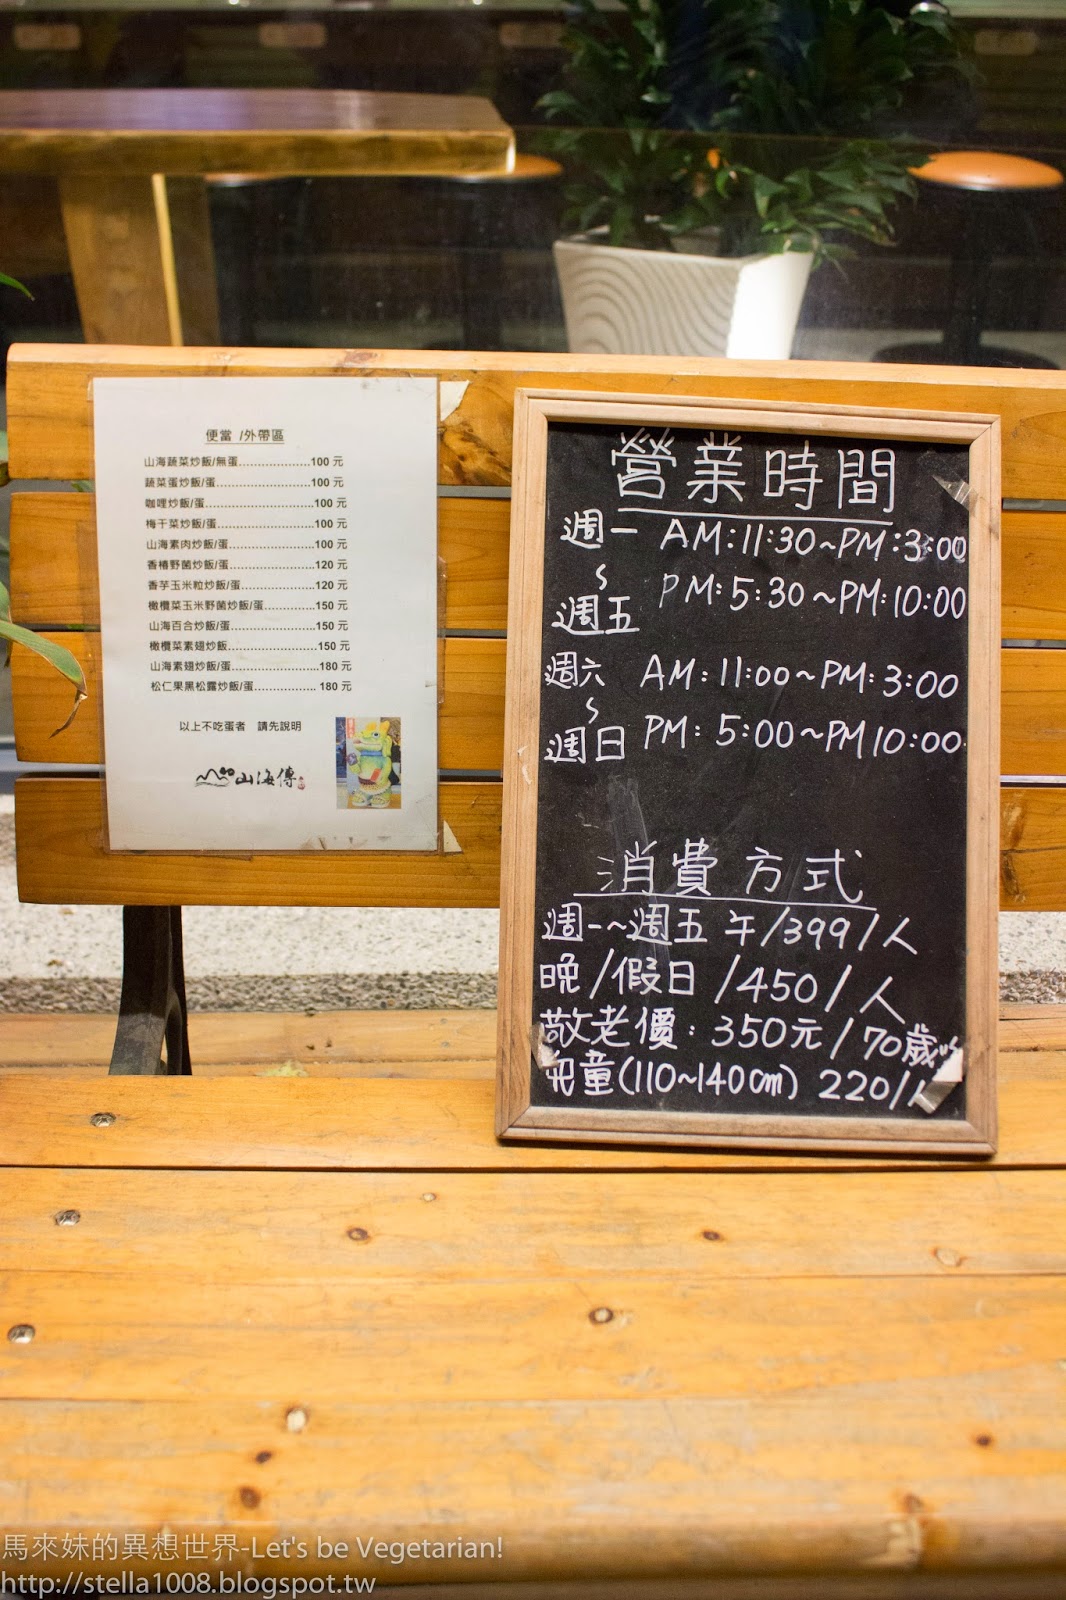 便當 /外帶區
山海蔬菜炒飯/無蛋.....................100 元
蔬菜蛋炒飯/蛋............................100 元
咖哩炒飯/蛋................................100 元
梅干菜炒飯/蛋............................100 元
山海素肉炒飯/蛋.........................100 元
香椿野菌炒飯/蛋.........................120 元
香芋玉米粒炒飯/蛋.....................120 元
橄欖菜玉米野菌炒飯/蛋...............150 元
山海百合炒飯/蛋.........................150 元
橄欖菜素翅炒飯...........................150 元
山海素翅炒飯/蛋..........................180 元
松仁果黑松露炒飯/蛋.................. 180 元
以上不吃蛋者 請先說明
山海傳
營業時間
週一 AM:11:30~PM:3:00
~ PM:5:30~PM:10:00
週五
週六 AM:11:00~PM:3:00
~
週日 PM:5:00~PM10:00
消費方式
週一~週五 午/399/人
晚/假日/450/人
敬老價:350元/70歲以
兒童(110~140cm) 220/人
馬來妹的異想世界-Let's be Vegetarian!
http://stella1008.blogspot.tw